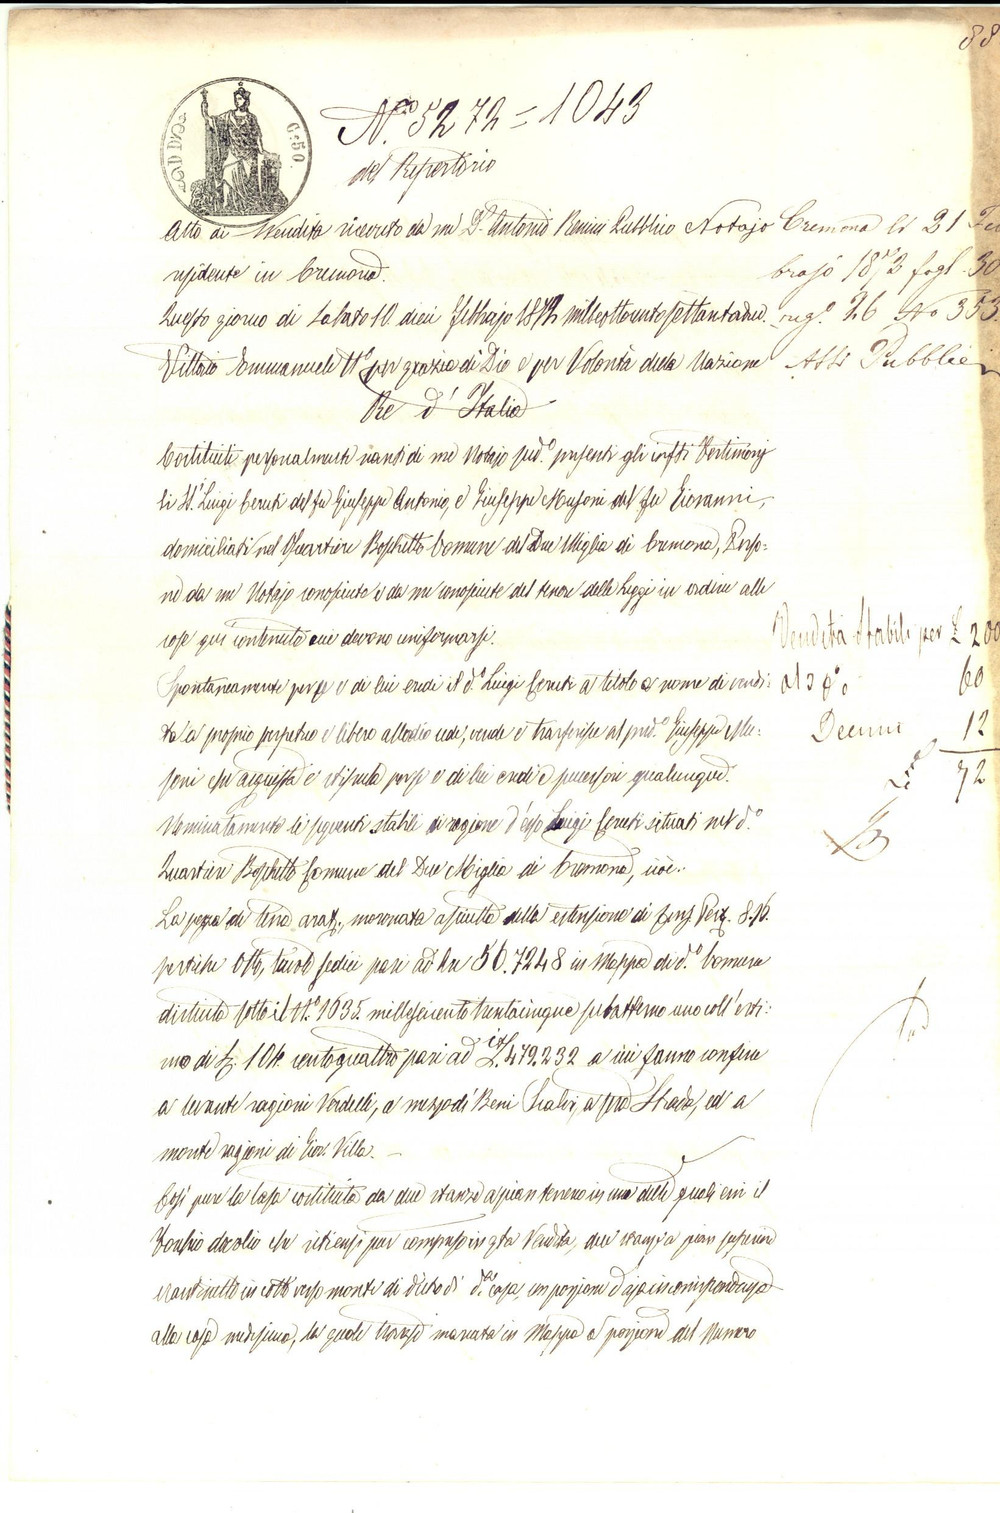 88
C. 50.
N.ro 5272 = 1043
del Repertorio
Atto di Vendita ricevuto da me D.r Antonio Pubblico Notajo
residente in Cremona.
Questo giorno di Sabato 10. dieci Febbrajo 1872 milleottocentosettantadue.
Vittorio Emmanuele II.o per grazia di Dio e per Volontà della Nazione
Re d'Italia
Cremona li 21 Feb
brajo 1872 fogl. 30
reg.o 26 No 353.
Atti Pubblici
Costituiti personalmente nanti di me Notajo sud.o presenti gli infti Testimonj
li SS.i Luigi Ceruti del fu Giuseppe Antonio, e Giuseppe Musoni del fu Giovanni,
domiciliati nel Quartiere Boschetto Comune del Due Miglia di Cremona, Perso=
ne da me Notajo conosciute e da me rese del tenore delle Leggi in ordine alle
cose qui contenute cui devono uniformarsi.
Spontaneamente per se e di lui eredi il d.o Luigi Ceruti a titolo e nome di vendi=
ta a proprio perpetuo e libero allodio cede, vende e trasferisce al pred.o Giuseppe Mu=
soni che acquista e stipula per se e di lui eredi e successori qualunque.
Vendita Stabili per £ 200
al 3 %
60
Decimi 12
£ 72
Nominatamente li seguenti stabili di ragione d'esso Luigi Ceruti situati nel d.o
Quartiere Boschetto Comune del Due Miglia di Cremona, cioè.
La pezza di terra arat., moronata della estensione di Cens. Pert. 8.16.
pertiche otto, tavole sedici pari ad Are 56.7248 in Mappa di d.o Comune
distinta sotto il N.o 1635. milleseicentotrentacinque subalterno uno coll'esti=
mo di £. 104. centoquattro pari ad it. £. 479.232 a cui fanno confine
a levante ragioni Verdelli, a mezzodì Beni a sera Strada, ed a
monte ragioni di Giov. Villa. —
Così pure la Casa costituita da due stanze a pian terreno in una delle quali evvi il
Torchio da olio che ritiensi pur compreso in q.ta Vendita, due stanze a pian superiore
in cotto verso monte di dietro di d.a casa, in porzione d'aja in corrispondenza
alla casa medesima, la quale trovasi marcata in Mappa a porzione del Numero